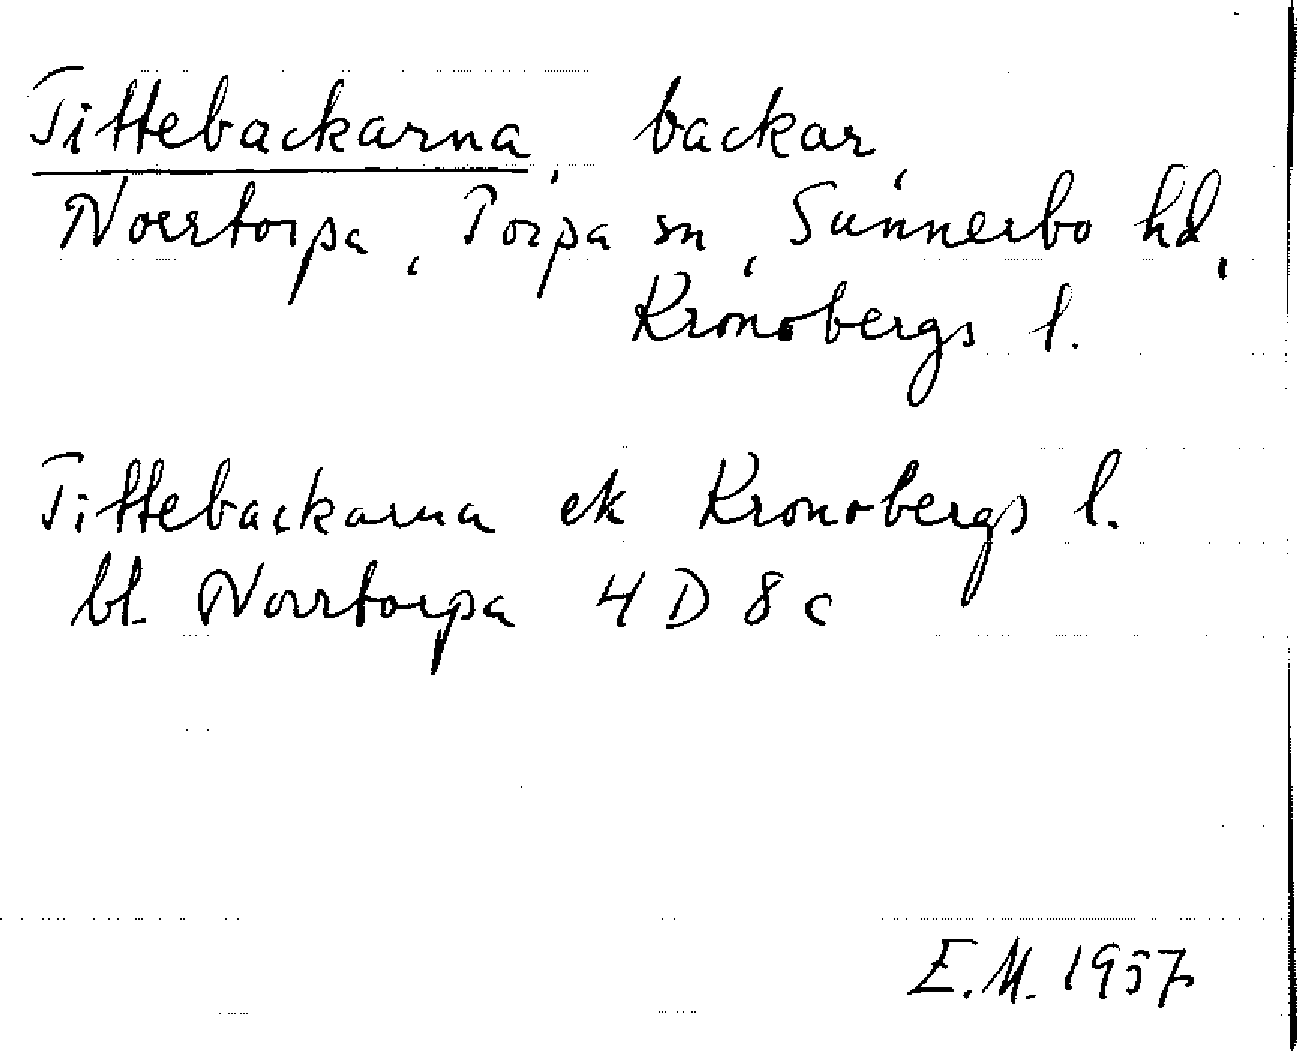 Tittebackarna, backar,
Norrtorpa, Torpa sn, Sunnerbo hd,
Kronobergs l.
Tittebackarna ek Kronobergs l.
bl. Norrtorpa 4 D 8 c
E.M. 1957